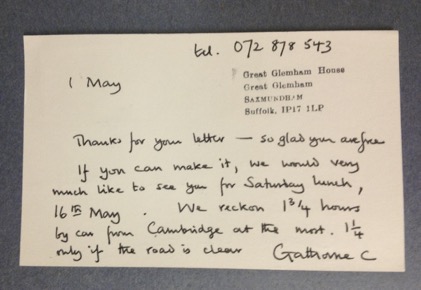 tel. 072 878 543
1 May
Great Glemham House
Great Glemham
SAXMUNDHAM
Suffolk, IP17 1LP
Thanks for your letter — so glad you are free
If you can make it, we would very
much like to see you for Saturday lunch,
16TH May. We reckon 1 3/4 hours
by car from Cambridge at the most. 1 1/4
only if the road is clear Gathorne C